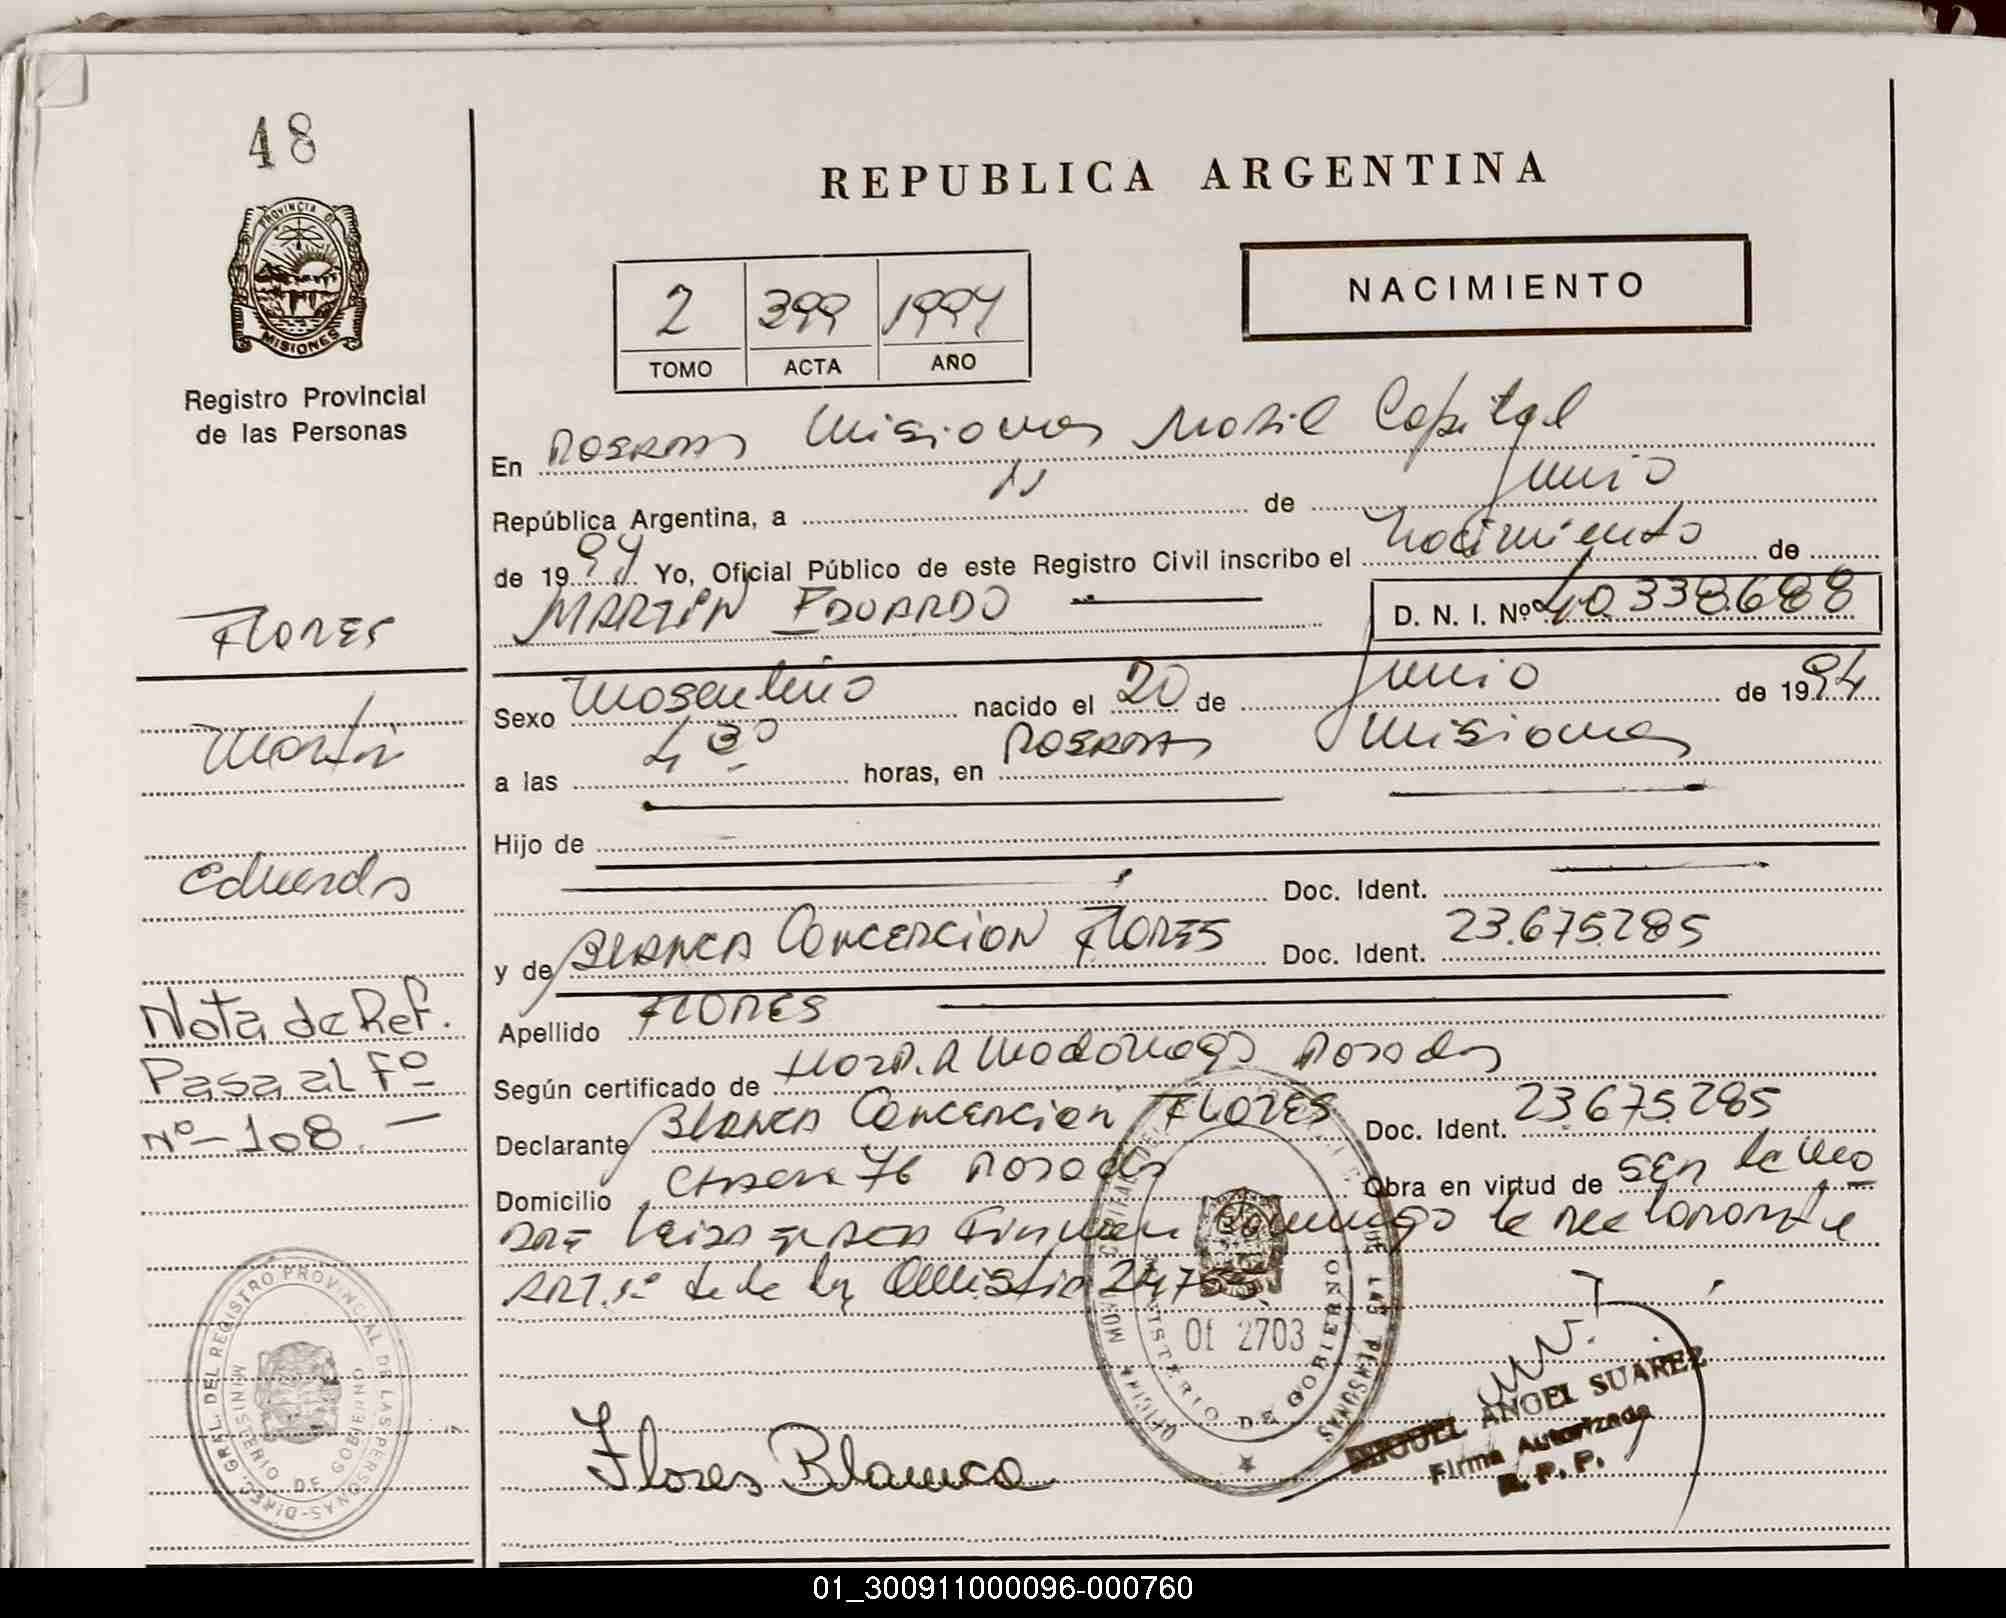 48
PROVINCIA DE
MISIONES
Registro Provincial
de las Personas
Flores
Martin
Eduardo
Nota de Ref.
Pasa al Fº
Nº-108.-
DIREC. GRAL. DEL REGISTRO PROVINCIAL DE LAS PERSONAS
MINISTERIO DE GOBIERNO
REPUBLICA ARGENTINA
2 399 1994
TOMO ACTA AÑO
NACIMIENTO
En Posadas Misiones Movil Capital
República Argentina, a de Junio
de 1994 Yo, Oficial Público de este Registro Civil inscribo el Nacimiento de
MARTIN EDUARDO D. N. I. Nº 40.338.688
Sexo Masculino nacido el 20 de Junio de 1994
a las 4 30 horas, en Posadas Misiones
Hijo de
Doc. Ident.
y de BLANCA CONCEPCION FLORES Doc. Ident. 23.675.285
Apellido FLORES
Según certificado de Hosp. R Madariaga Posadas
Declarante BLANCA CONCEPCION FLORES Doc. Ident. 23.675.285
Domicilio Chacra 76 Posadas Obra en virtud de ser la
firman la declarante
ART. 1º de la Ley Amnistia
Of 2703
MINISTERIO DE GOBIERNO
Flores Blanca
MIGUEL ANGEL SUAREZ
Firma Autorizada
R. P. P.
01_300911000096-000760